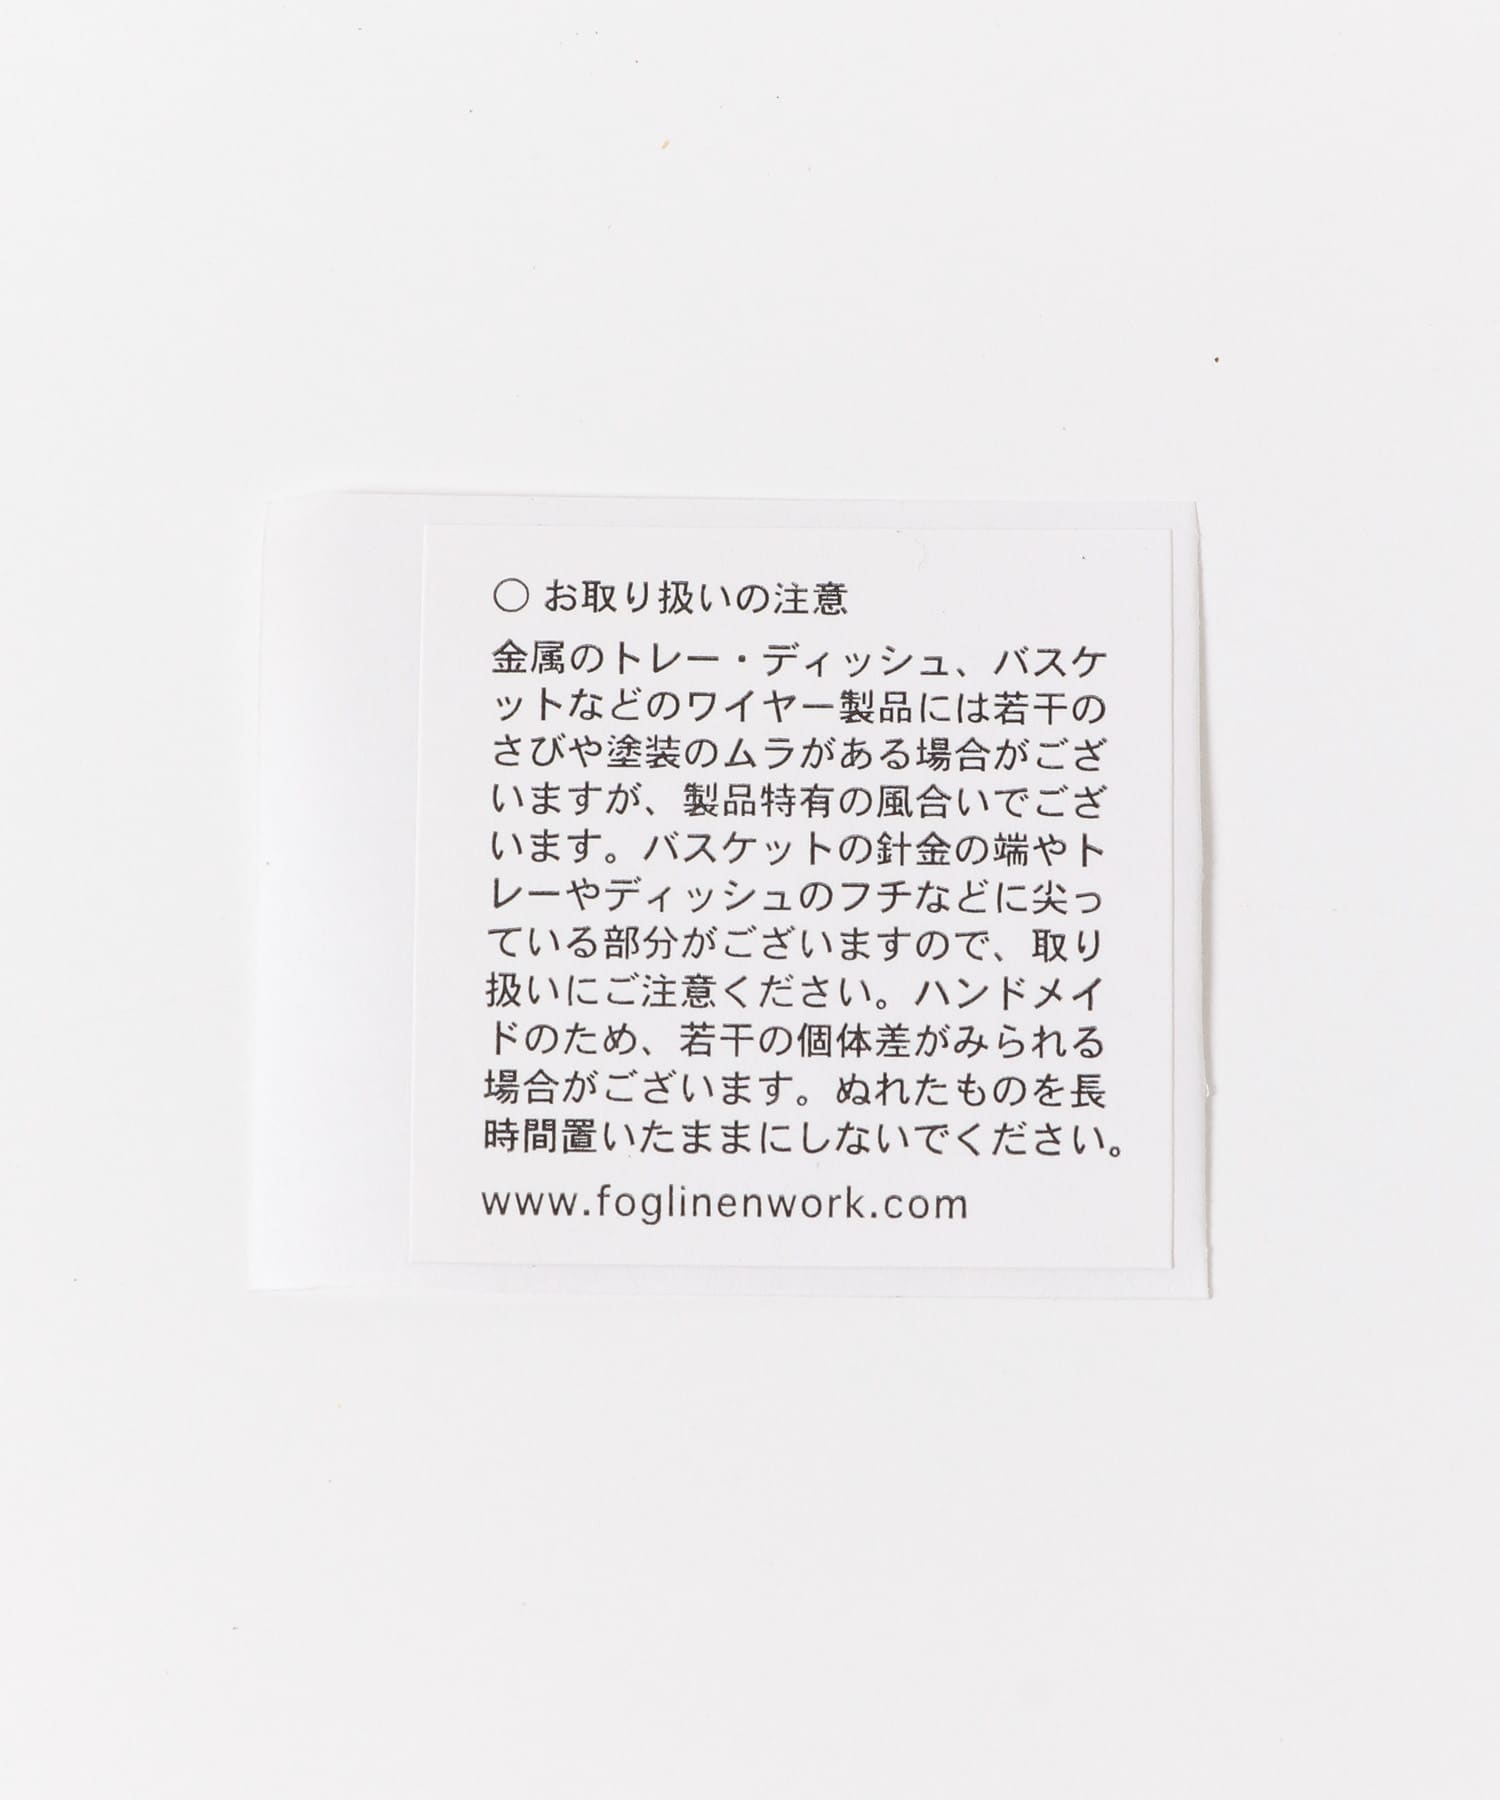 ○ お取り扱いの注意
金属のトレー・ディッシュ、バスケ
ットなどのワイヤー製品には若干の
さびや塗装のムラがある場合がござ
いますが、製品特有の風合いでござ
います。バスケットの針金の端やト
レーやディッシュのフチなどに尖っ
ている部分がございますので、取り
扱いにご注意ください。ハンドメイ
ドのため、若干の個体差がみられる
場合がございます。ぬれたものを長
時間置いたままにしないでください。
www.foglinenwork.com